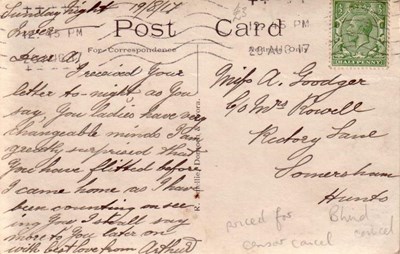 Sunday Night 19/8/17
Post Card
For Correspondence
Dear A,
I received your
letter to-night as you
say. You ladies have very
changeable minds I am
greatly surprised that
you have flitted before
I came home as I have
been counting on see-
ing you I shall say
more to you later on
with best love from Arthur
12.45 PM
20 AU 17
HALF PENNY
Miss A. Goodger
C/o Mrs Rowell
Rectory Lane
Somersham
Hunts
priced for
censor cancel
Blind